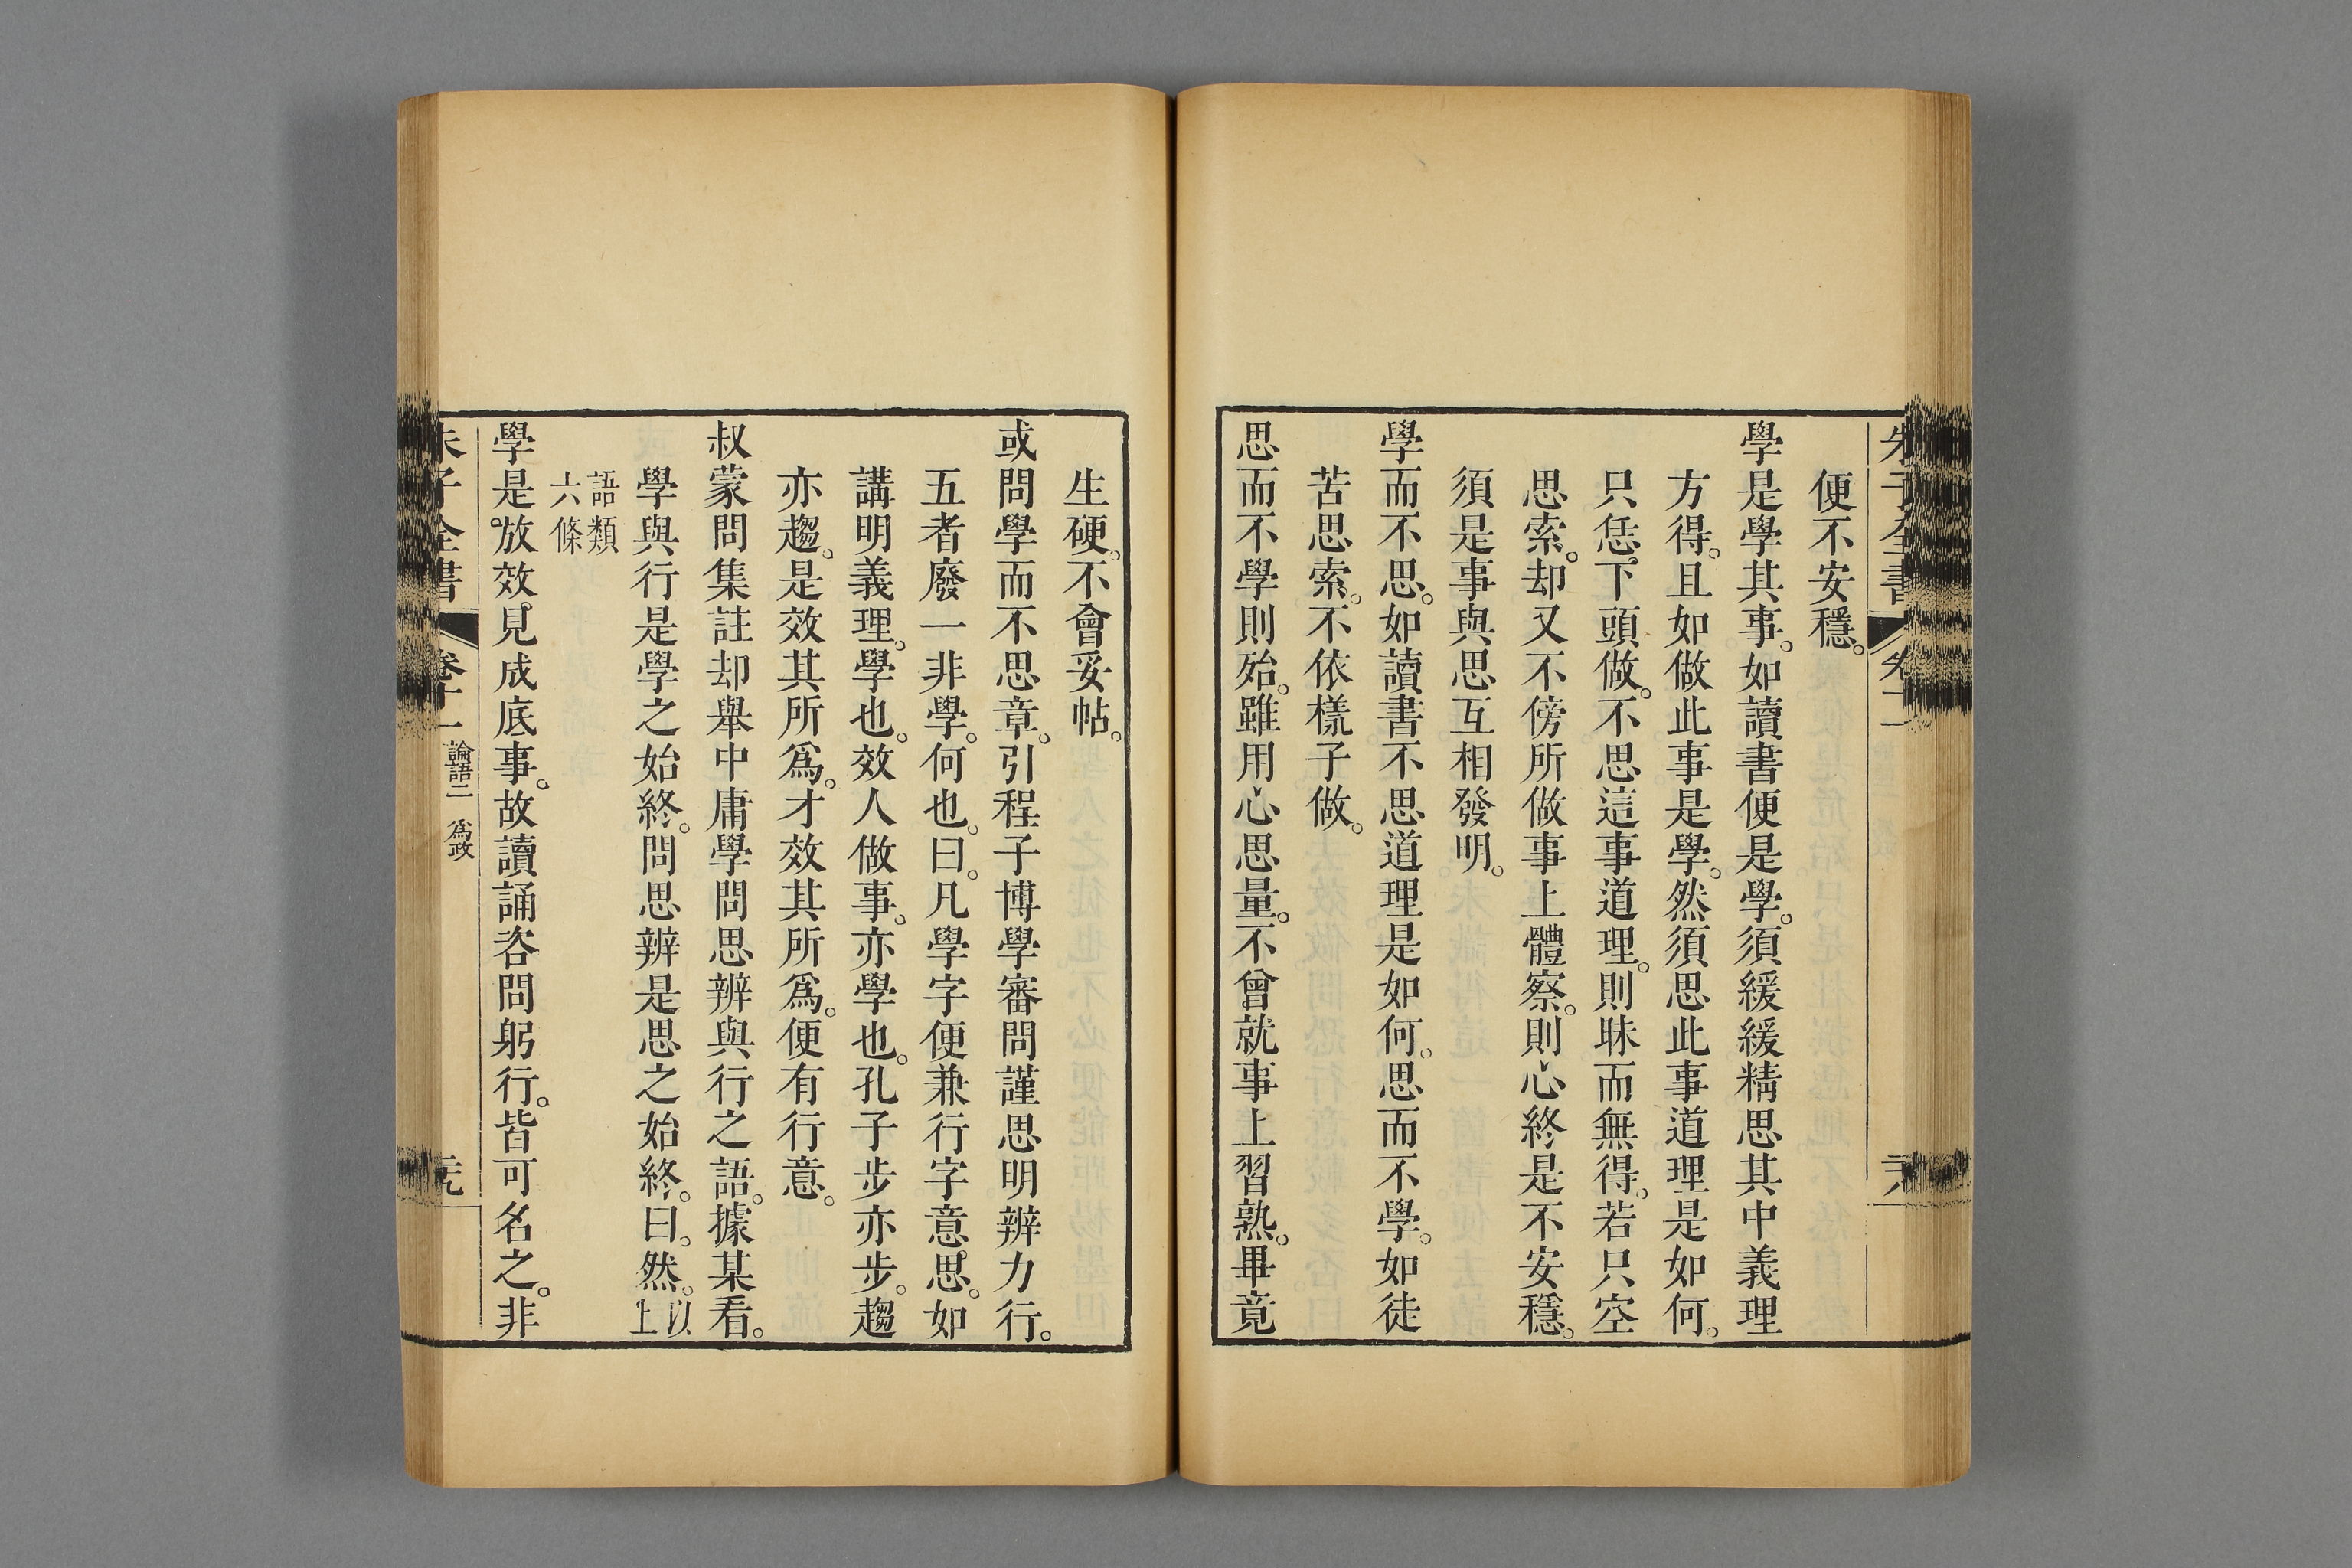 便不安穩。
學是學其事。如讀書便是學。須緩緩精思其中義理
方得。且如做此事是學。然須思此事道理是如何。
只恁下頭做。不思這事道理。則昧而無得。若只空
思索。却又不傍所做事上體察。則心終是不安穩。
須是事與思互相發明。
學而不思。如讀書不思道理是如何。思而不學。如徒
苦思索。不依樣子做。
思而不學則殆。雖用心思量。不曾就事上習熟。畢竟
生硬。不會妥帖。
或問學而不思章。引程子博學審問謹思明辨力行。
五者廢一非學。何也。曰。凡學字便兼行字意思。如
講明義理。學也。效人做事。亦學也。孔子步亦步。趨
亦趨。是效其所爲。才效其所爲。便有行意。
叔蒙問集註却舉中庸學問思辨與行之語。據某看。
學與行是學之始終。問思辨是思之始終。曰。然。以上
語類
六條
學是放效。見成底事。故讀誦咨問躬行。皆可名之。非
朱子全書 卷十一 論語二 爲政 二十九